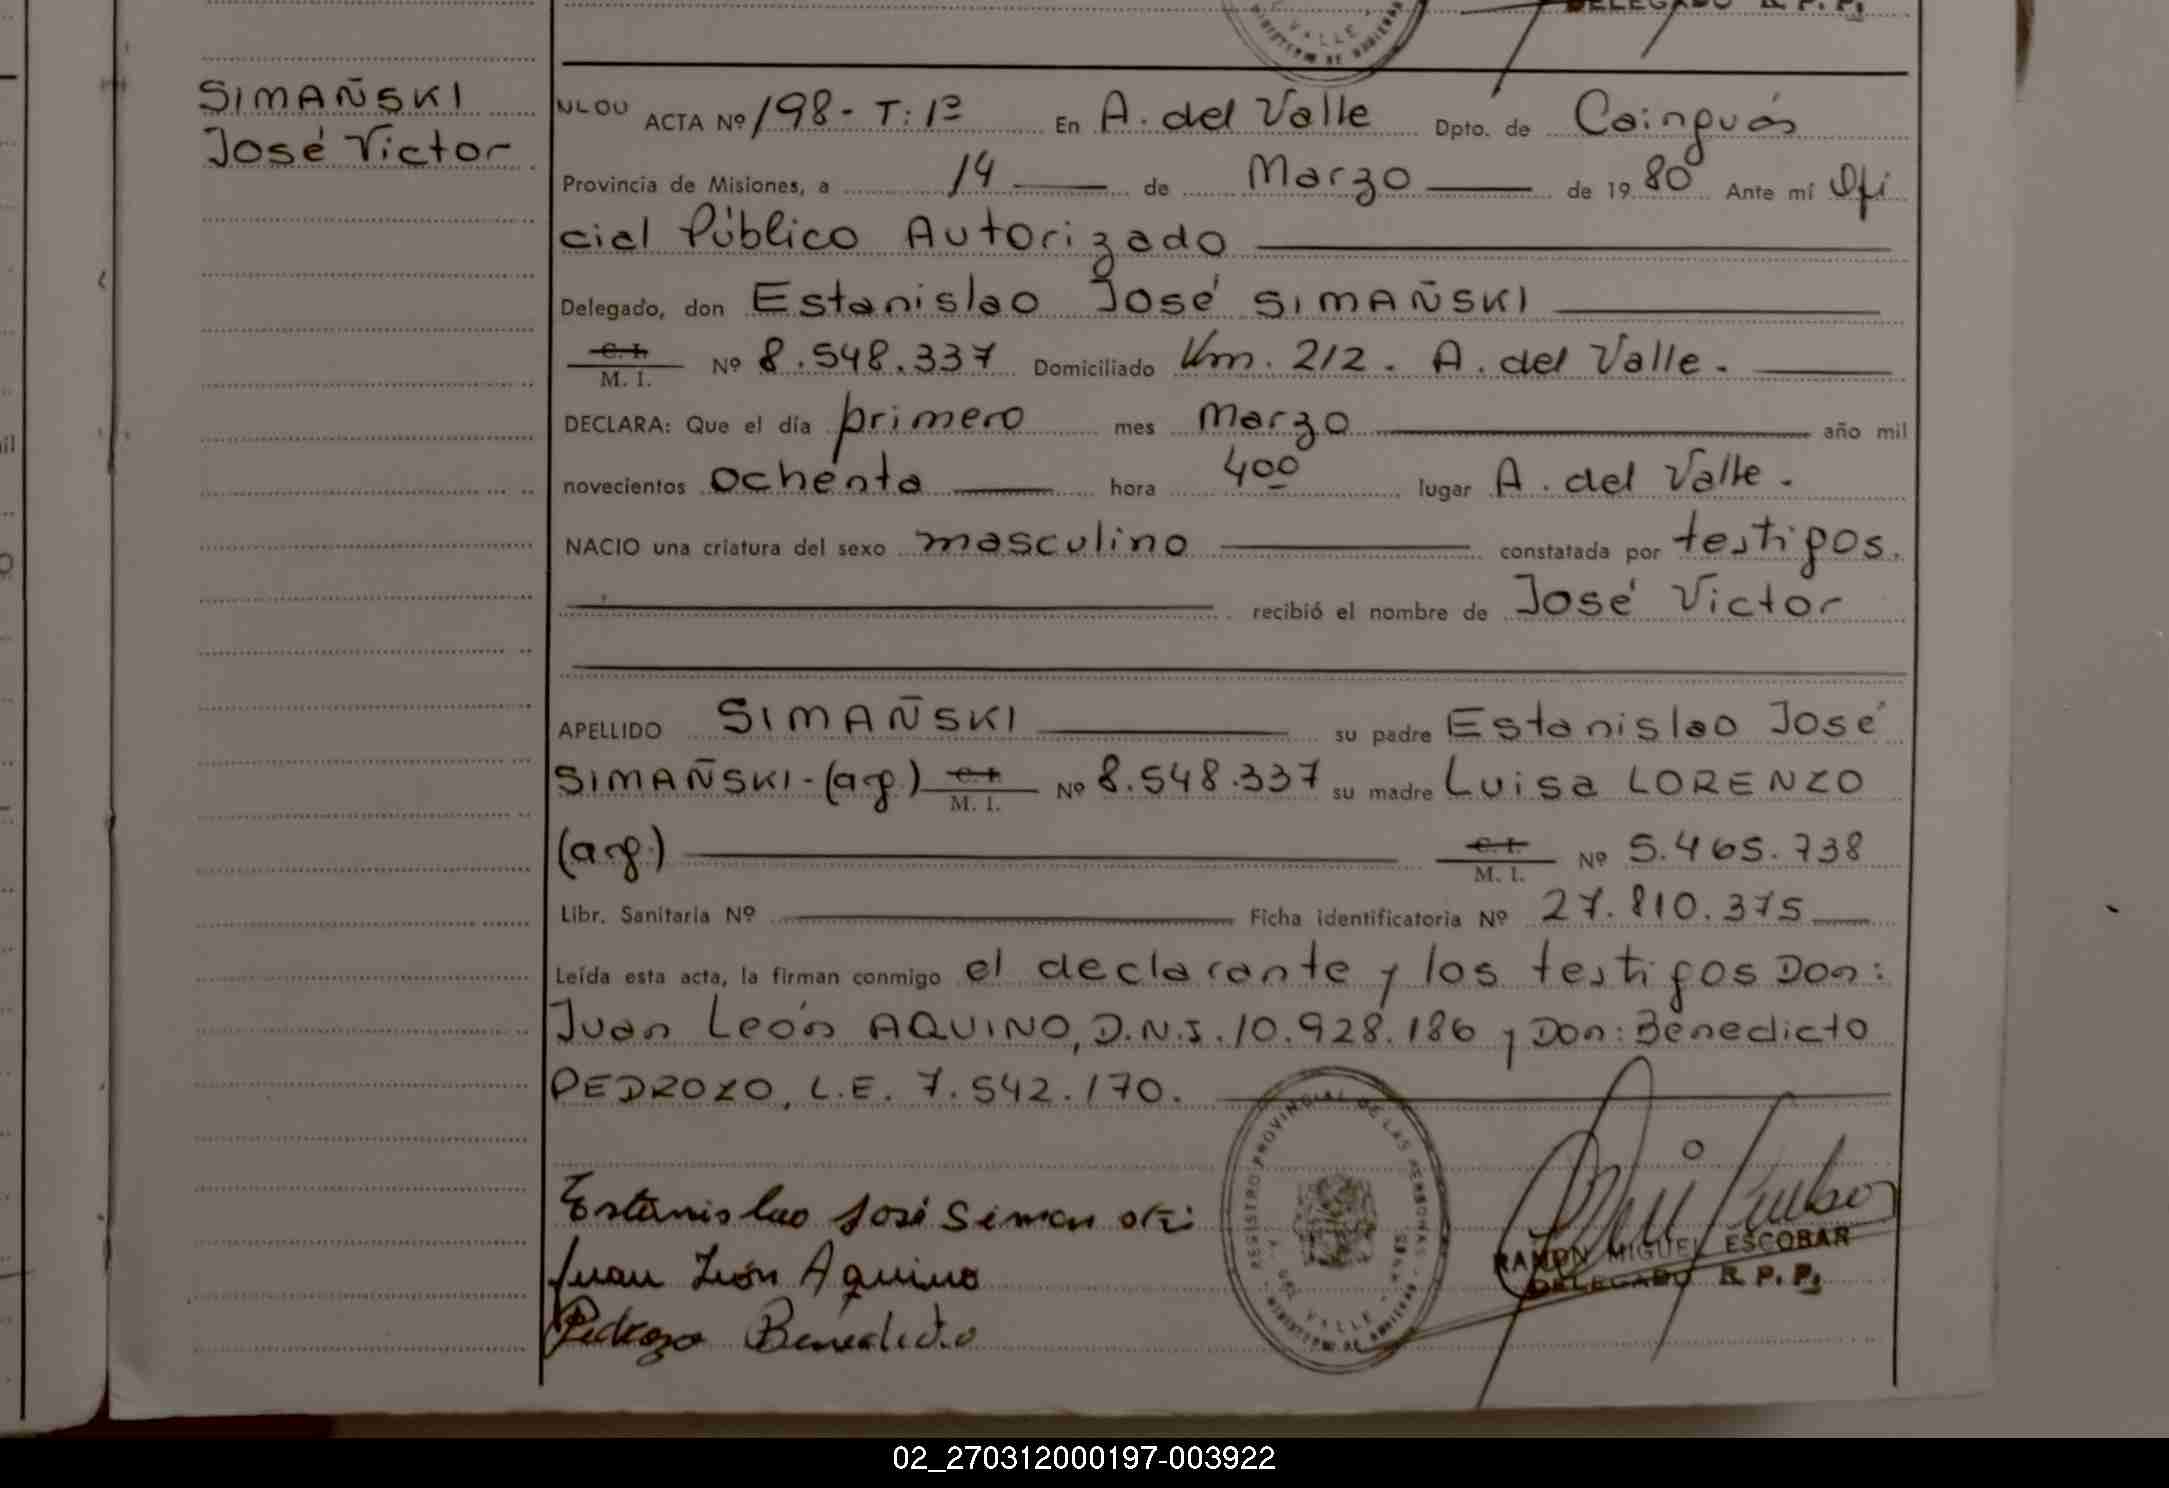 DELEGADO R. P. P.
SIMAÑSKI
José Victor
ACTA Nº 198 - T: 1º En A. del Valle Dpto. de Cainguás
Provincia de Misiones, a 14 de Marzo de 1980 Ante mí Ofi
cial Público Autorizado
Delegado, don Estanislao José SIMAÑSKI
C. I.
M. I. Nº 8.548.337 Domiciliado Km. 212. A. del Valle.
DECLARA: Que el día primero mes Marzo año mil
novecientos ochenta hora 400 lugar A. del Valle.
NACIO una criatura del sexo masculino constatada por testigos.
recibió el nombre de José Victor
APELLIDO SIMAÑSKI su padre Estanislao José
SIMAÑSKI - (arg.) C. I. M. I. Nº 8.548.337 su madre Luisa LORENZO
(arg.) C. I. M. I. Nº 5.465.738
Libr. Sanitaria Nº Ficha identificatoria Nº 27.810.375
Leída esta acta, la firman conmigo el declarante y los testigos Don:
Juan León AQUINO, D.N.I. 10.928.186 y Don: Benedicto
PEDROZO, L.E. 7.542.170.
REGISTRO PROVINCIAL DE LAS PERSONAS
Estanislao José Simanski
Juan León Aquino
Pedrozo Benedicto
RAMON MIGUEL ESCOBAR
DELEGADO R. P. P.
02_270312000197-003922